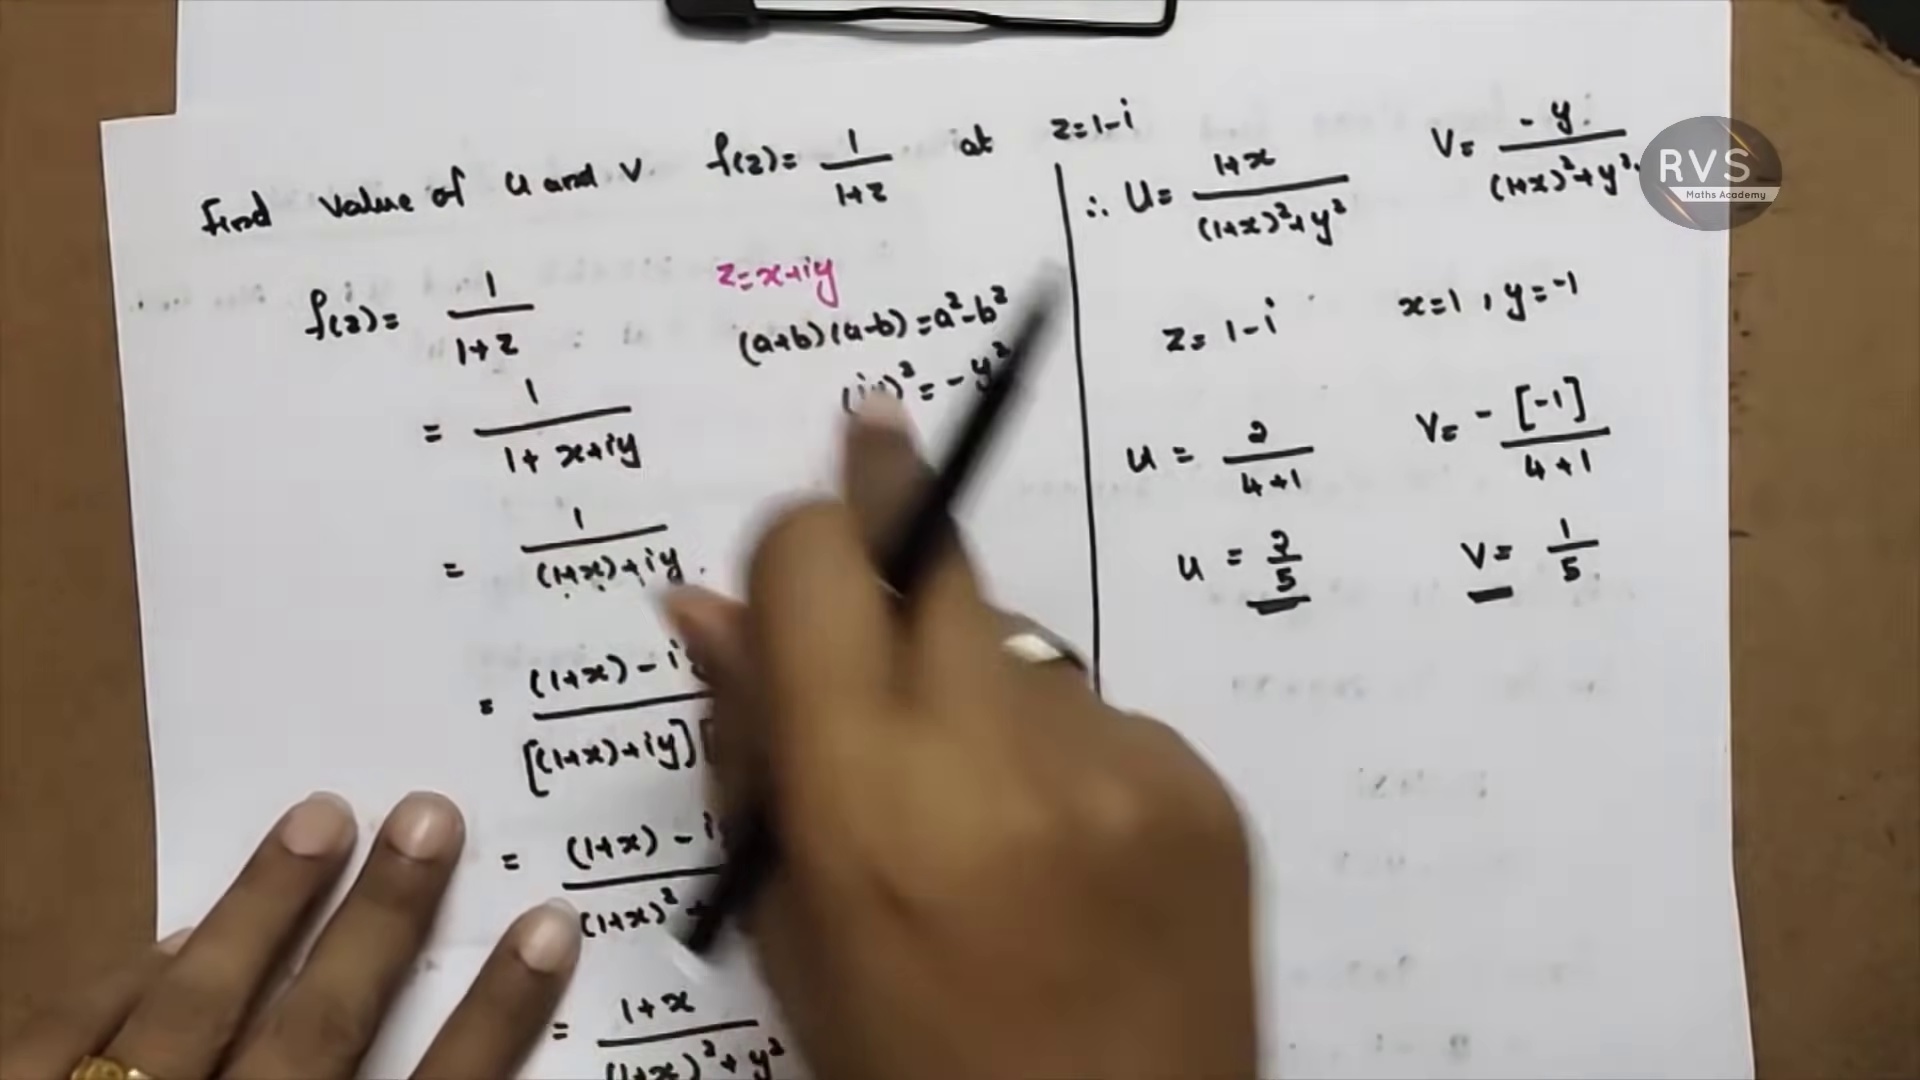 Find value of u and v f(z)= 1/(1+z) at z=1-i
f(z)= 1/(1+z)
z=x+iy
(a+b)(a-b)=a²-b²
(iy)²=-y²
= 1/(1+x+iy)
= 1/((1+x)+iy)
= (1+x)-i
[(1+x)+iy][
= (1+x)-i
(1+x)²+
= (1+x)/((1+x)²+y²)
∴ U= (1+x)/((1+x)²+y²) V= -y/((1+x)²+y²)
z=1-i x=1, y=-1
u = 2/(4+1) V= -[-1]/(4+1)
u = 2/5 V= 1/5
RVS
Maths Academy